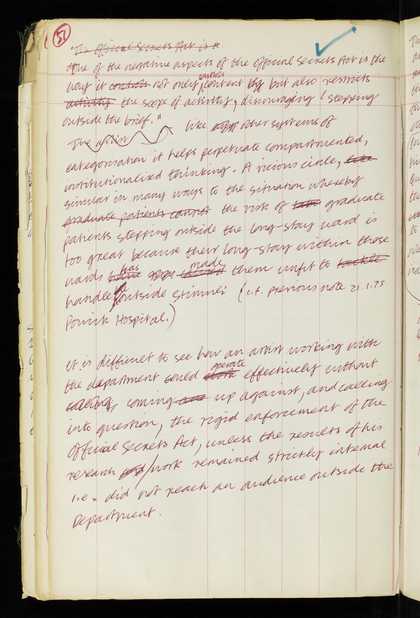 51
"The Official Secrets Act is a
One of the negative aspects of the Official Secrets Act is the
way it controls not only content but also restricts
activity the scope of activity, discouraging 'stepping
outside the brief."
The like other systems of
categorisation it helps perpetuate compartmented,
institutionalised thinking. A vicious circle,
similar in many ways to the situation whereby
graduate patients cannot the risk of graduate
patients stepping outside the long-stay ward is
too great because their long-stay within those
wards has made them unfit to
handle outside stimuli (c.f. Previous note 21.1.75
Powick Hospital.)
It is difficult to see how an artist working with
the department could operate effectively without
coming up against, and calling
into question, the rigid enforcement of the
Official Secrets Act, unless the results of his
research and/work remained strictly internal
i.e. did not reach an audience outside the
Department.